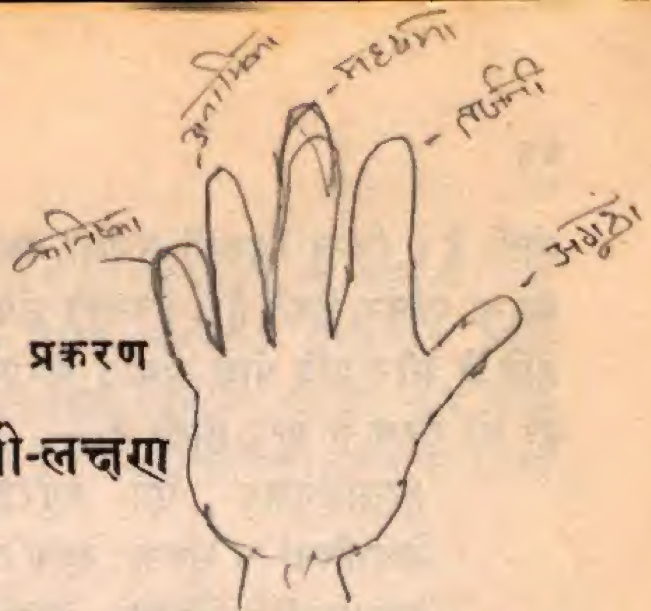 कनिष्का
अनामिका
मध्यमा
तर्जनी
अंगूठा
प्रकरण
ी-लक्षण